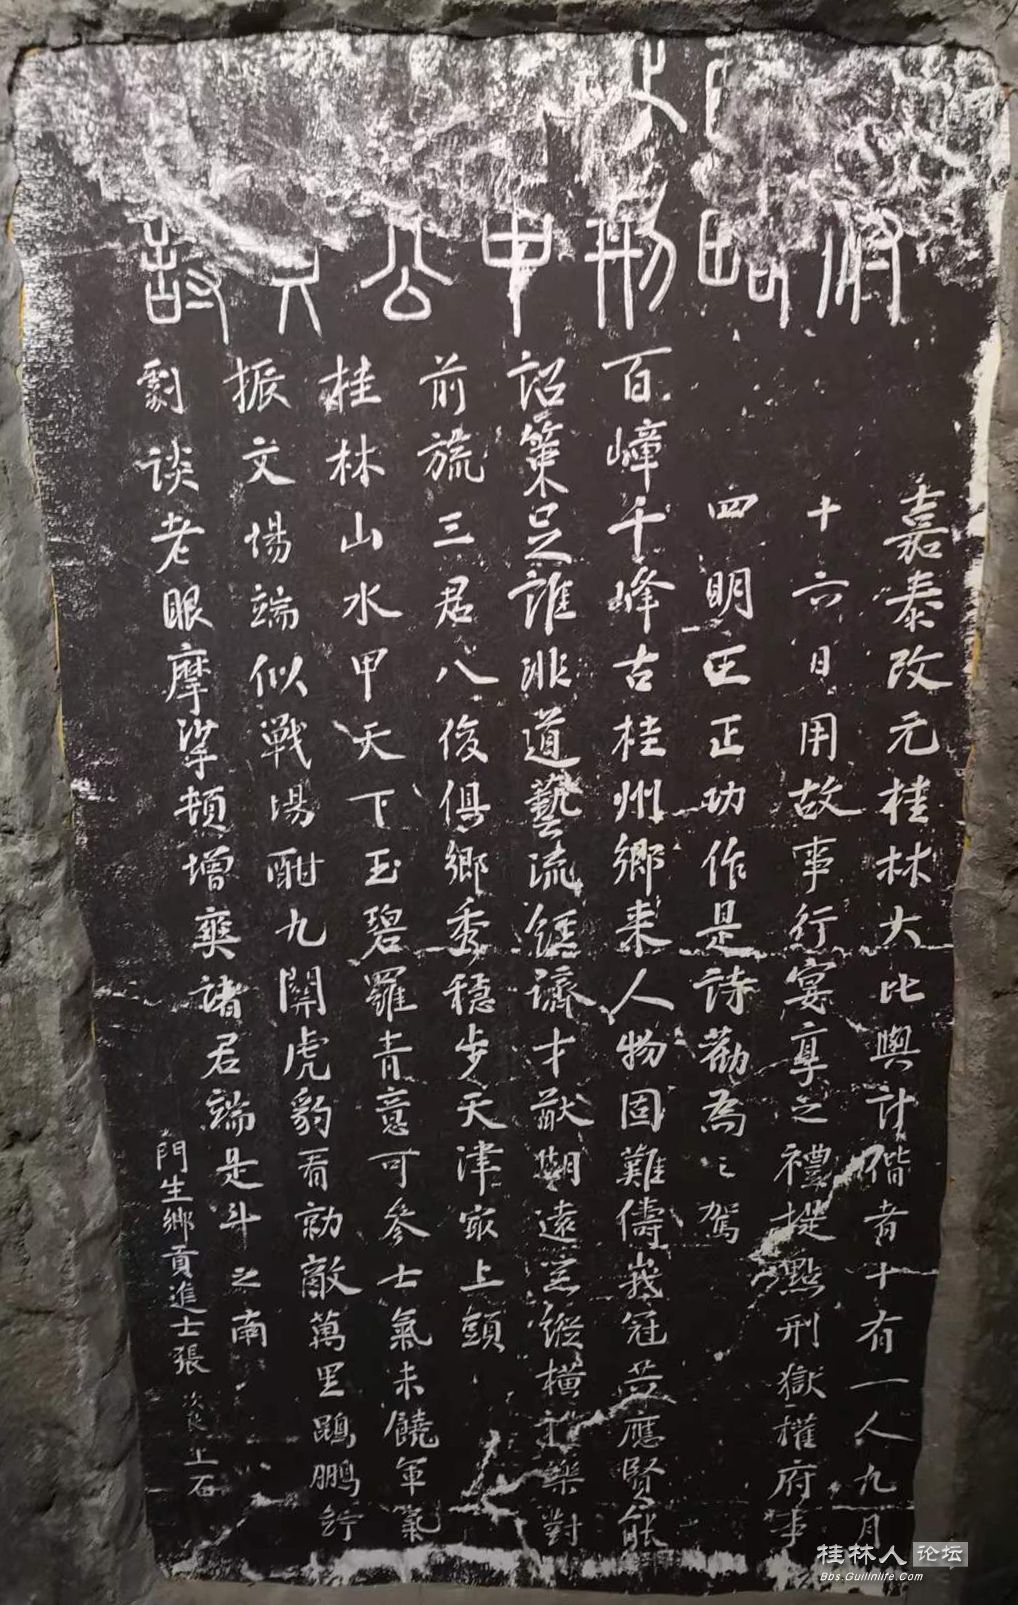 府略刑中公詩
嘉泰改元桂林大比與計偕者十有一人九月
十六日用故事行宴享之禮提點刑獄權府事
四明王正功作是詩勸為之駕
百嶂千峰古桂州鄉來人物固難儔峩冠共應賢能
詔策足誰非道藝流經濟才猷期遠器縱橫禮樂對
前旒三君八俊俱鄉秀穩步天津最上頭
桂林山水甲天下玉碧羅青意可參士氣未饒軍氣
振文場端似戰場酣九關虎豹看勍敵萬里鵾鵬佇
劇談老眼摩挲頓增爽諸君端是斗之南
門生鄉貢進士張次良上石
桂林人论坛
Bbs.Guilinlife.Com